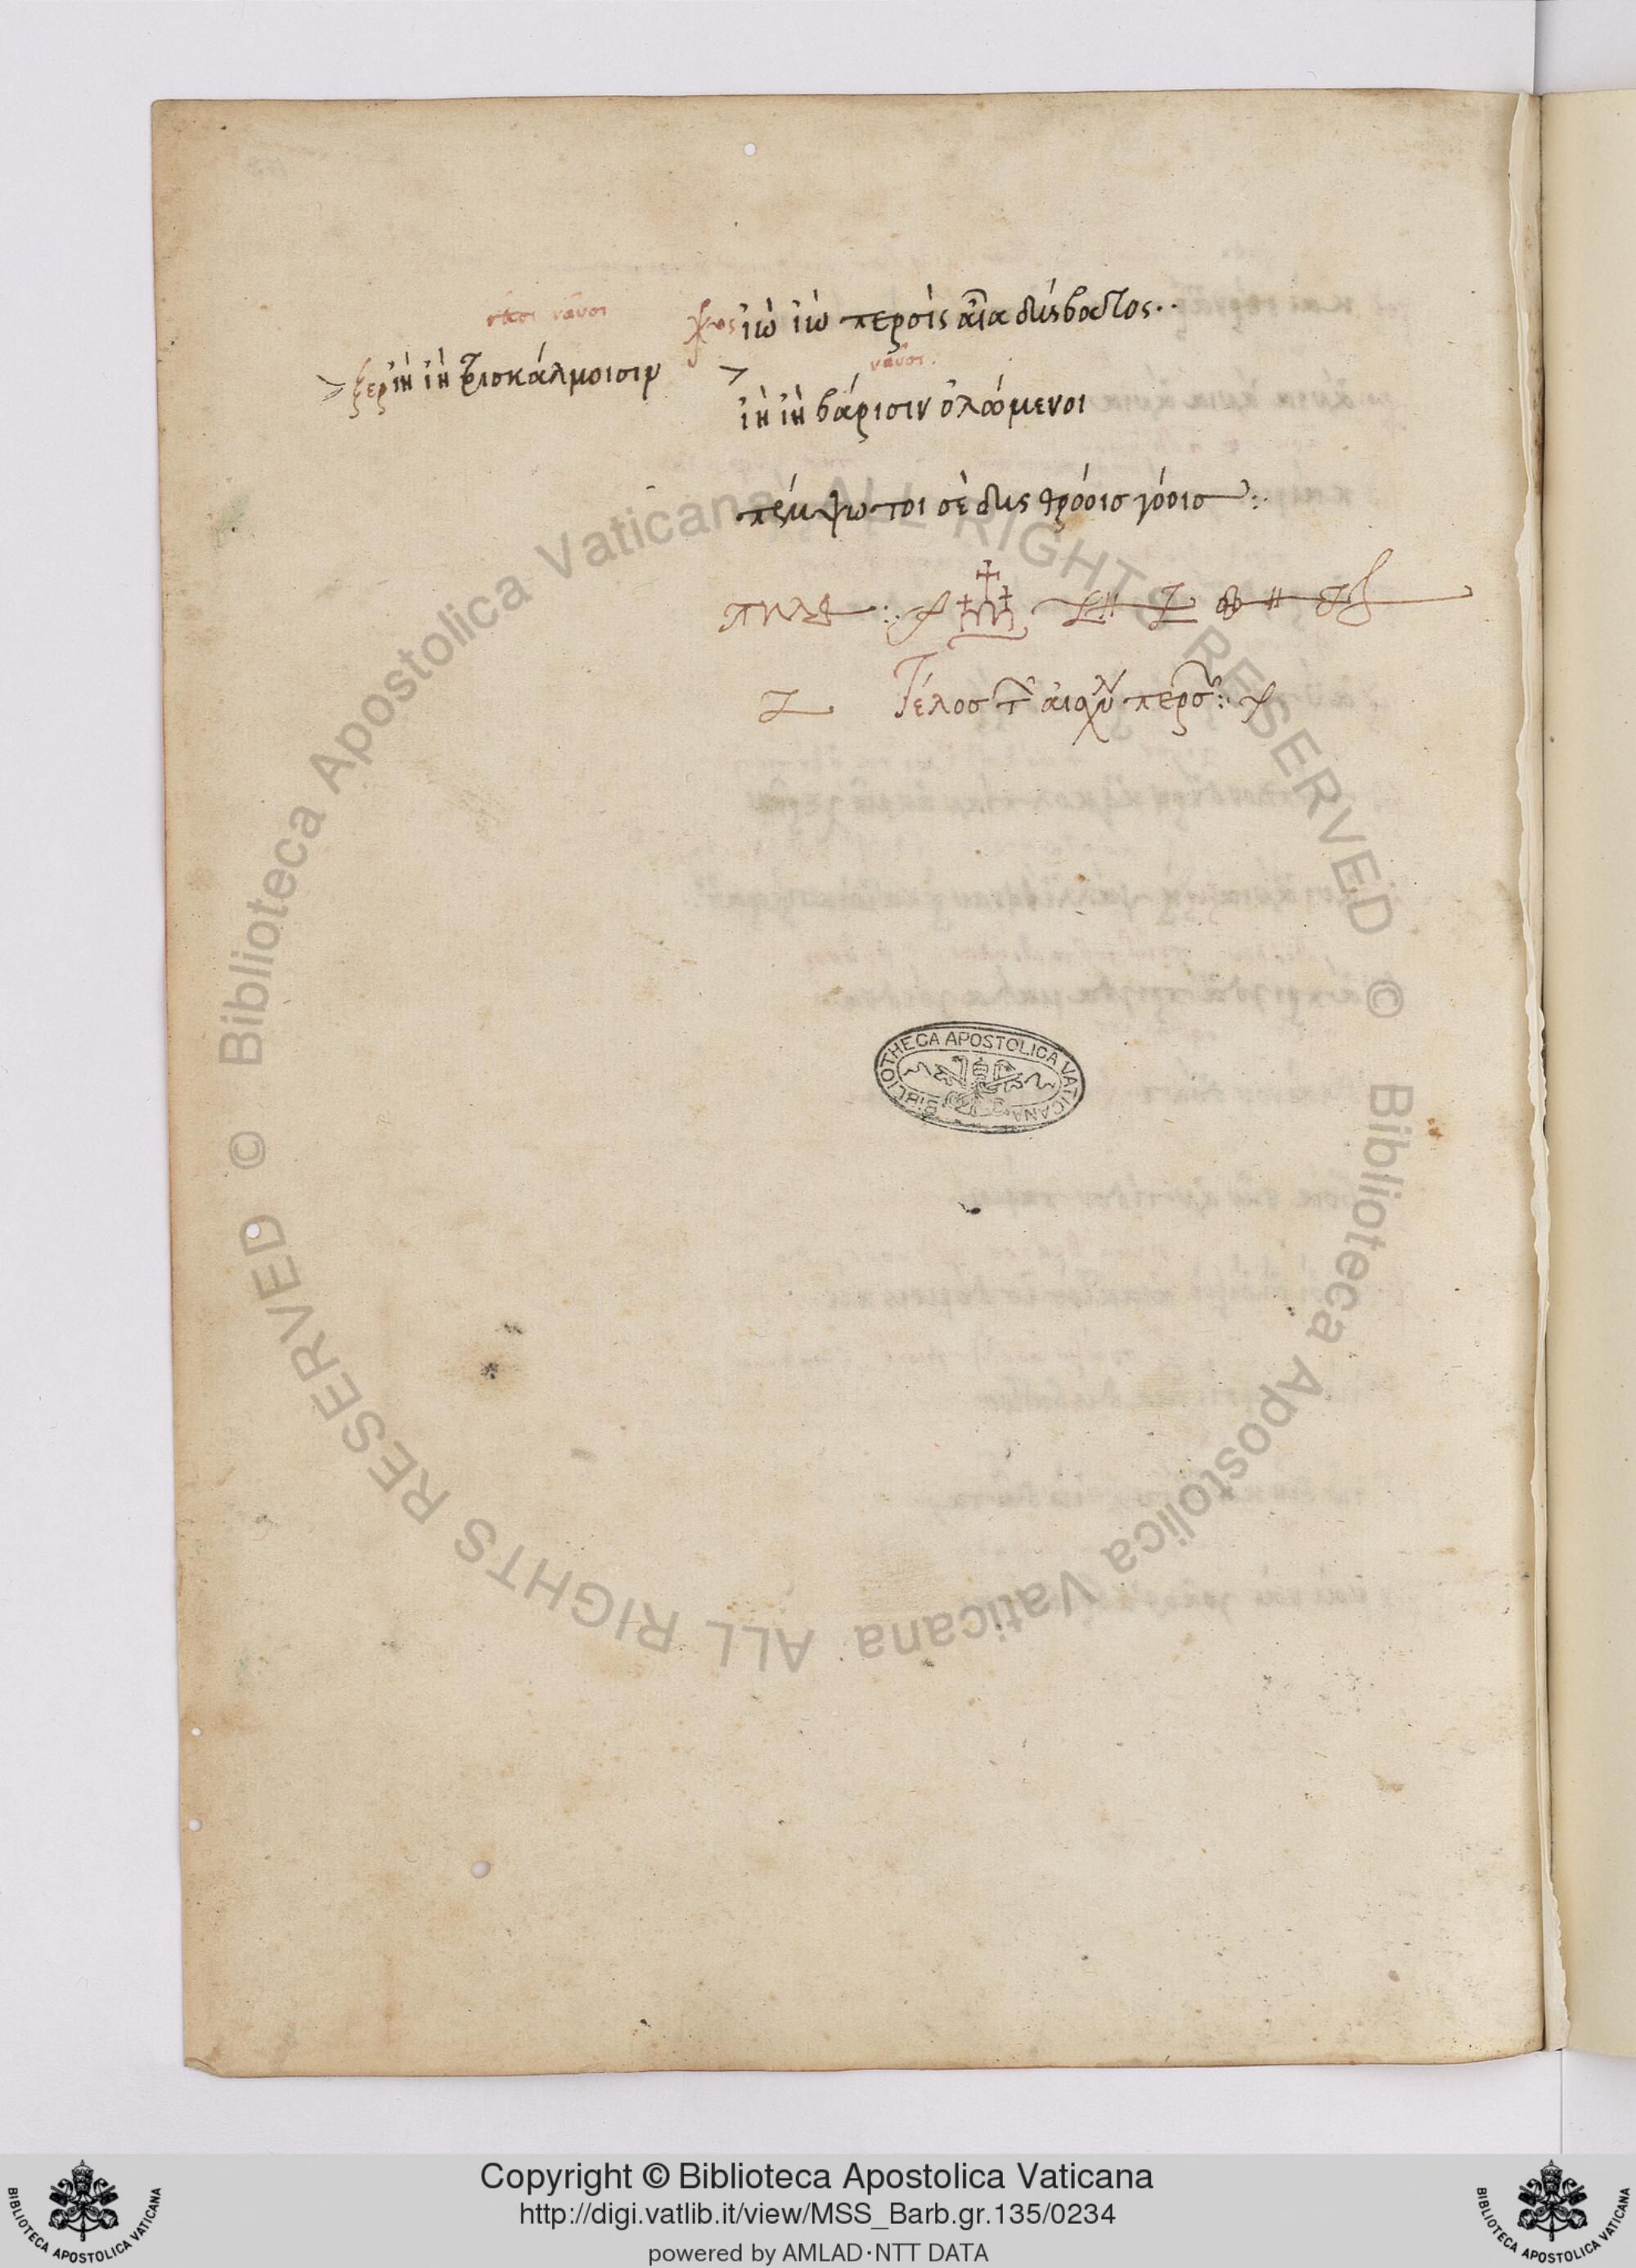 ἰὼ ἰὼ περσὶς αἶα δύσβατος..
ναῦσι.
ξερ ἰὴ ἰὴ τρισκάλμοισιν
ἰὴ ἰὴ βάρισιν ὀλόμενοι
πέμψω τοι σὲ δυςθρόοισ γόοισ:.
Τέλοσ τ αἰσχύ περσ:
BIBLIOTHECA APOSTOLICA VATICANA
© Biblioteca Apostolica Vaticana ALL RIGHTS RESERVED © Biblioteca Apostolica Vaticana ALL RIGHTS RESERVED
Copyright © Biblioteca Apostolica Vaticana
http://digi.vatlib.it/view/MSS_Barb.gr.135/0234
powered by AMLAD·NTT DATA
BIBLIOTECA APOSTOLICA VATICANA
BIBLIOTECA APOSTOLICA VATICANA